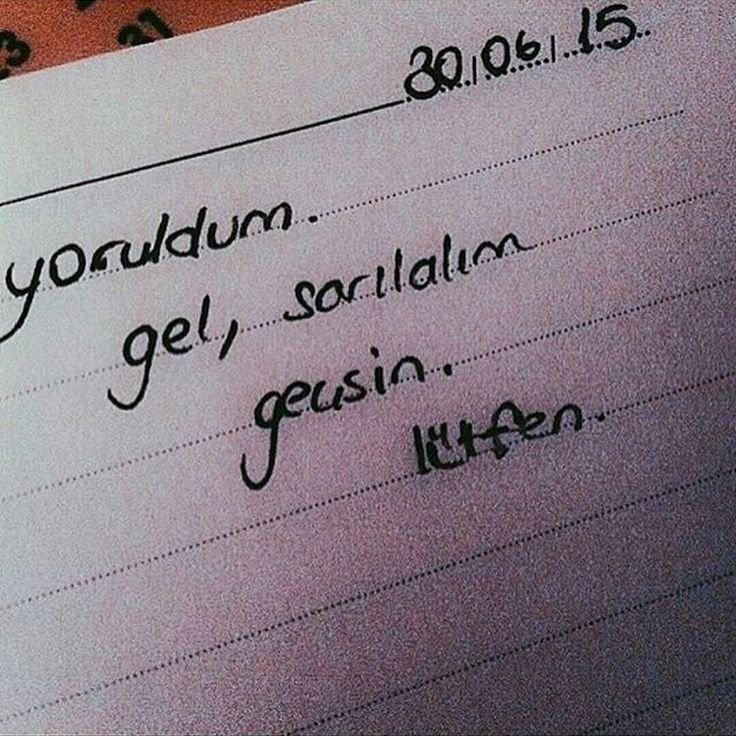 23 31
30/06/15
yoruldum.
gel, sarılalım
geçsin.
lütfen.